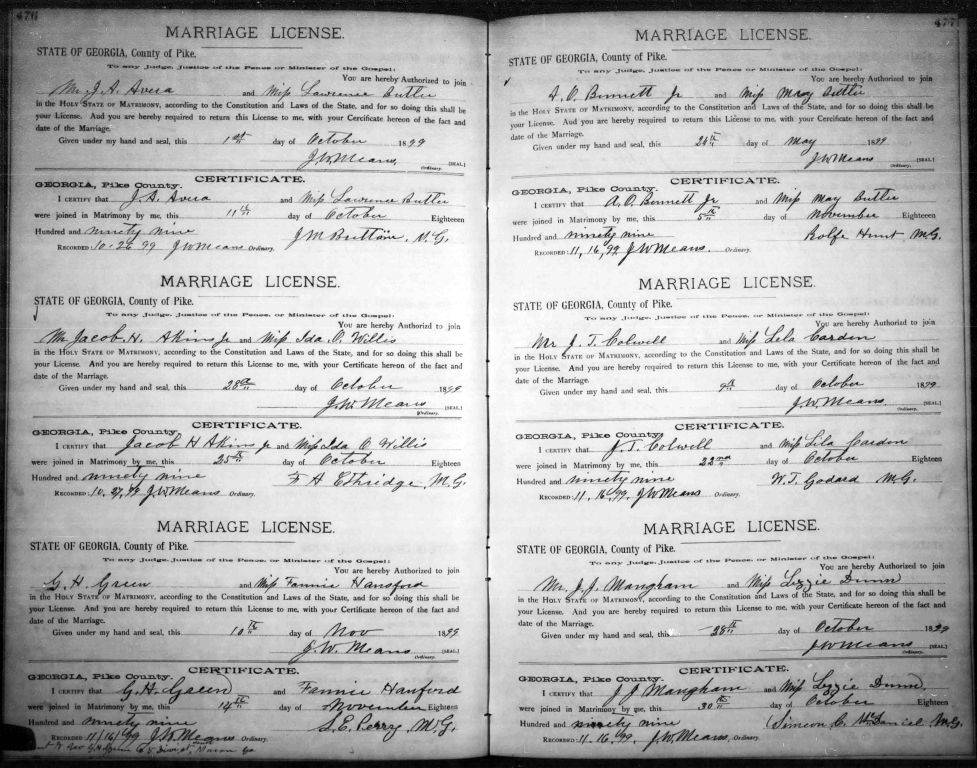 476
MARRIAGE LICENSE.
STATE OF GEORGIA, County of Pike.
To any Judge, Justice of the Peace or Minister of the Gospel:
You are hereby Authorized to join
Mr J. A. Avera and Miss Lawrence Butler
in the HOLY STATE OF MATRIMONY, according to the Constitution and Laws of the State, and for so doing this shall be
your License. And you are hereby required to return this License to me, with your Cercificate hereon of the fact and
date of the Marriage.
Given under my hand and seal, this 1st day of October 1899
J.W. Means, [SEAL.]
Ordinary.
CERTIFICATE.
GEORGIA, Pike County.
I CERTIFY that J. A. Avera and Miss Lawrence Butler
were joined in Matrimony by me, this 11th day of October Eighteen
Hundred and ninety nine J M Brittain, M.G.
RECORDED: 10-26-99 J W Means Ordinary.
MARRIAGE LICENSE.
STATE OF GEORGIA, County of Pike.
To any Judge, Justice of the Peace, or Minister of the Gospel:
You are hereby Authorized to join
Mr Jacob H. Akins Jr and Miss Ida O. Willis
in the HOLY STATE OF MATRIMONY, according to the Constitution and Laws of the State, and for so doing this shall be
your License. And you are hereby required to return this License to me, with your Certificate hereon of the fact and
date of the Marriage.
Given under my hand and seal, this 28th day of October 1899
J.W. Means [SEAL.]
Ordinary.
CERTIFICATE.
GEORGIA, Pike County.
I CERTIFY that Jacob H Akins Jr and Miss Ida O Willis
were joined in Matrimony by me, this 25th day of October Eighteen
Hundred and ninety nine F H Ethridge, M.G.
RECORDED: 10, 27, 99 J.W. Means Ordinary.
MARRIAGE LICENSE.
STATE OF GEORGIA, County of Pike.
To any Judge, Justice of the Peace, or Minister of the Gospel:
You are hereby Authorized to join
G. H. Green and Miss Fannie Hansford
in the HOLY STATE OF MATRIMONY, according to the Constitution and Laws of the State, and for so doing this shall be
your License. And you are hereby required to return this License to me, with your Certificate hereon of the fact and
date of the Marriage.
Given under my hand and seal, this 10th day of Nov 1899
J. W. Means [SEAL.]
Ordinary.
CERTIFICATE.
GEORGIA, Pike County.
I CERTIFY that G. H. Green and Fannie Hanford
were joined in Matrimony by me, this 14th day of November Eighteen
Hundred and ninety nine S. E. Perry, M.G.
RECORDED: 11/16/99 J. W. Means Ordinary.
Macon Ga
477
MARRIAGE LICENSE.
STATE OF GEORGIA, County of Pike.
To any Judge, Justice of the Peace or Minister of the Gospel:
You are hereby Authorized to join
A. O. Bennett Jr and Miss May Butler
in the HOLY STATE OF MATRIMONY, according to the Constitution and Laws of the State, and for so doing this shall be
your License. And you are hereby required to return this License to me, with your Certificate hereon of the fact and
date of the Marriage.
Given under my hand and seal, this 26th day of May 1899
J.W. Means [SEAL.]
Ordinary.
CERTIFICATE.
GEORGIA, Pike County.
I CERTIFY that A. O. Bennett Jr and Miss May Butler
were joined in Matrimony by me, this 5th day of November Eighteen
Hundred and ninety nine Rolfe Hunt M.G.
RECORDED: 11, 16, 99 J.W. Means. Ordinary.
MARRIAGE LICENSE.
STATE OF GEORGIA, County of Pike.
To any Judge, Justice of the Peace, or Minister of the Gospel:
You are hereby Authorized to join
Mr J. T. Colwell and Miss Lela Carden
in the HOLY STATE OF MATRIMONY, according to the Constitution and Laws of the State, and for so doing this shall be
your License. And you are hereby required to return this License to me, with your Certificate hereon of the fact and
date of the Marriage.
Given under my hand and seal, this 9th day of October 1899
J.W. Means [SEAL.]
Ordinary.
CERTIFICATE.
GEORGIA, Pike County.
I CERTIFY that J. T. Colwell and Miss Lila Carden
were joined in Matrimony by me, this 22nd day of October Eighteen
Hundred and ninety nine W. T. Godard M.G.
RECORDED: 11, 16, 99, J.W. Means Ordinary.
MARRIAGE LICENSE.
STATE OF GEORGIA, County of Pike.
To any Judge, Justice of the Peace, or Minister of the Gospel:
You are hereby Authorized to join
Mr. J. J. Mangham and Miss Lizzie Dunn
in the HOLY STATE OF MATRIMONY, according to the Constitution and Laws of the State, and for so doing this shall be
your License. And you are hereby required to return this License to me, with your Certificate hereon of the fact and
date of the Marriage.
Given under my hand and seal, this 28th day of October 1899
J.W. Means [SEAL.]
Ordinary.
CERTIFICATE.
GEORGIA, Pike County.
I CERTIFY that J. J. Mangham and Miss Lizzie Dunn
were joined in Matrimony by me, this 30th day of October Eighteen
Hundred and ninety nine Simeon C. M.G.
RECORDED: 11.16.99, J.W. Means, Ordinary.